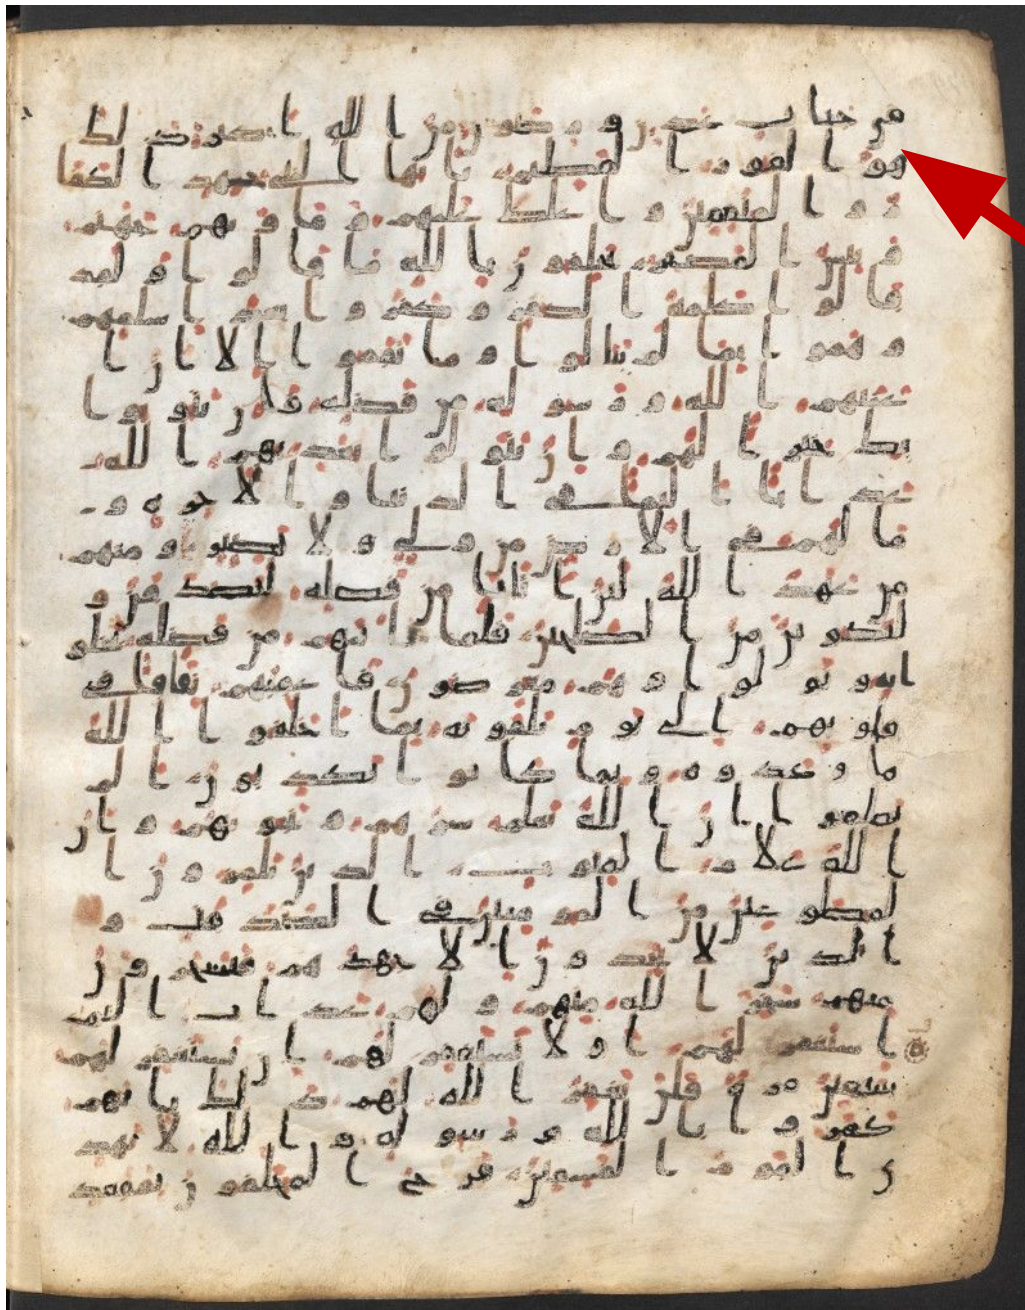 في جنات عدن ورضون من الله اكبر ذلك
هو الفوز العظيم يايها النبي جهد الكفا
ر والمنفقين واغلظ عليهم وماويهم جهنم
وبئس المصير يحلفون بالله ما قالوا ولقد
قالوا كلمة الكفر وكفروا بعد اسلمهم
وهموا بما لم ينالوا وما نقموا الا ان ا
غنيهم الله ورسوله من فضله فان يتوبوا
يك خيرا لهم وان يتولوا يعذبهم الله
عذابا اليما في الدنيا والاخرة و
ما لهم في الارض من ولي ولا نصير ومنهم
من عهد الله لئن اتانا من فضله لنصدقن و
لنكونن من الصلحين فلما اتيهم من فضله بخلو
ا به وتولوا وهم معرضون فاعقبهم نفاقا في
قلوبهم الى يوم يلقونه بما اخلفوا الله
ما وعدوه وبما كانوا يكذبون الم
يعلموا ان الله يعلم سرهم ونجويهم وان
الله علام الغيوب الذين يلمزون ا
لمطوعين من المومنين في الصدقت و
الذين لا يجدون الا جهدهم فيسخرون
منهم سخر الله منهم ولهم عذاب اليم
استغفر لهم او لا تستغفر لهم ان تستغفر لهم
سبعين مرة فلن يغفر الله لهم ذلك بانهم
كفروا بالله ورسوله والله لا يهد
ي القوم الفسقين فرح المخلفون بمقعد